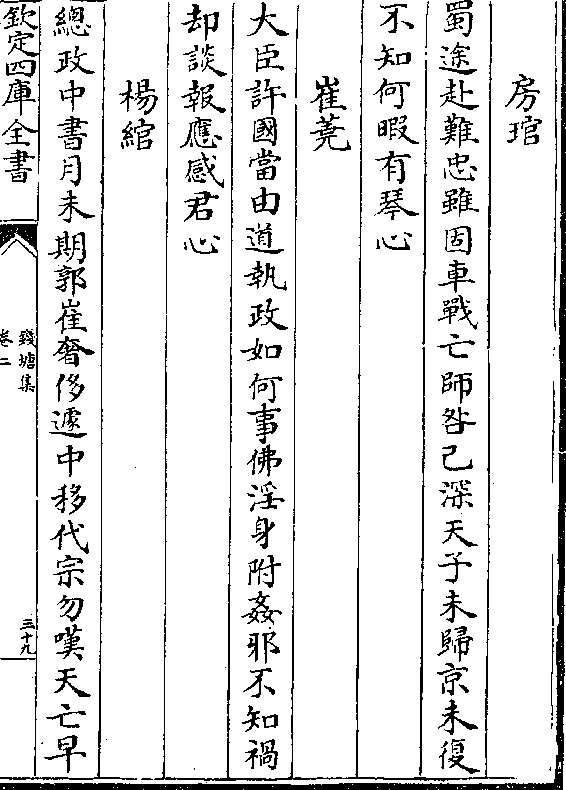 房琯
蜀途赴難忠雖固車戰亡師咎已深天子未歸京未復
不知何暇有琴心
崔蕘
大臣許國當由道執政如何事佛淫身附姦邪不知禍
却談報應感君心
楊綰
總政中書月未期郭崔奢侈遽中移代宗勿嘆天亡早
欽定四庫全書
錢塘集
卷二
三十九